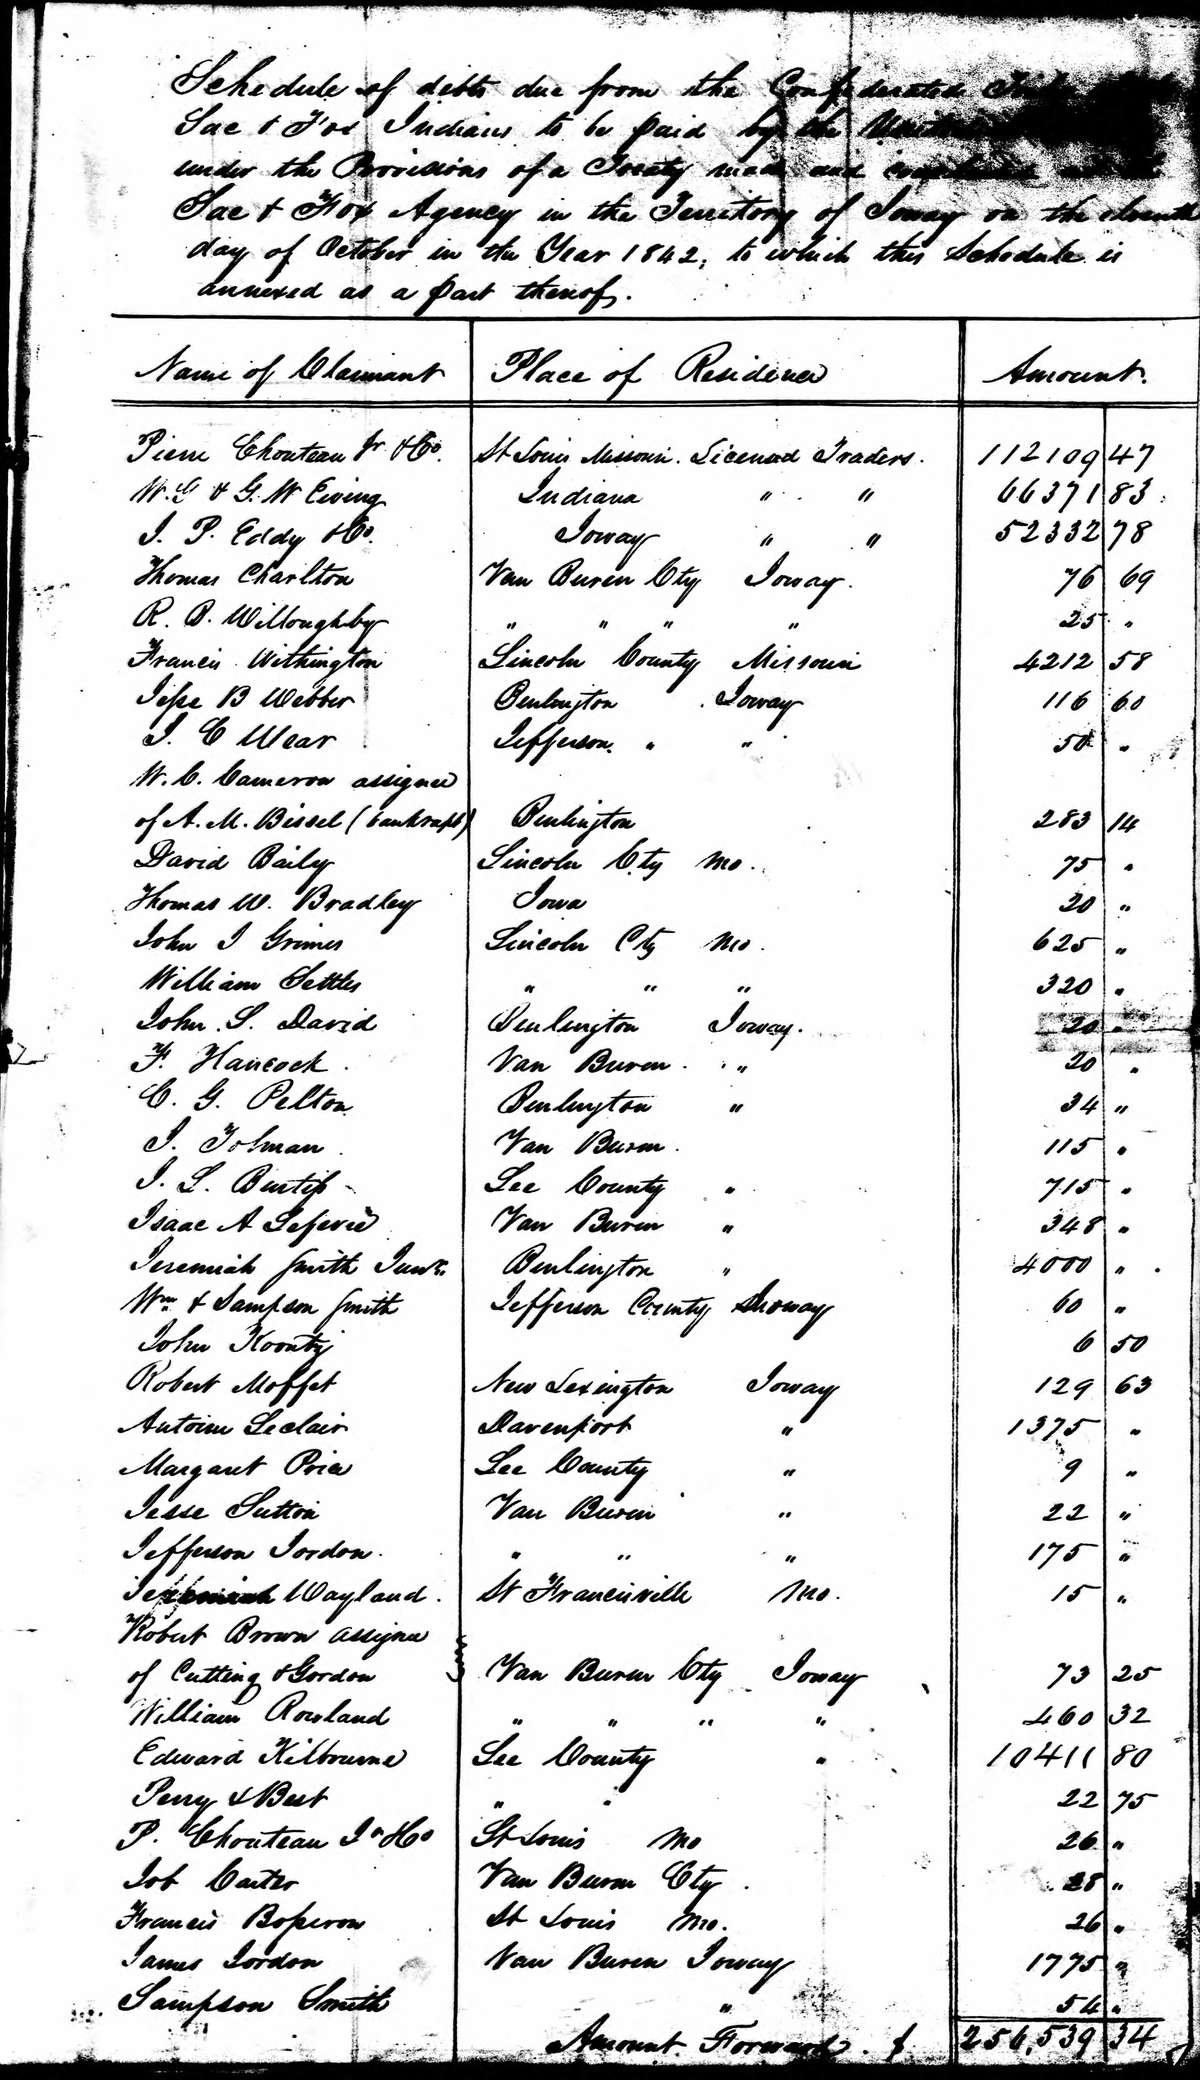 Schedule of debts due from the Confederated
Sac & Fox Indians to be paid by the United
under the Provisions of a Treaty made and concluded
Sac & Fox Agency in the Territory of Ioway on the eleventh
day of October in the Year 1842, to which this Schedule is
annexed as a part thereof.
Name of Claimant Place of Residence Amount.
Pierre Chouteau Jr & Co. St Louis Missouri. Licensed Traders. 112109 47
W. G & G. W Ewing Indiana " " 66371 83
J. P. Eddy & Co. Ioway " " 52332 78
Thomas Charlton Van Buren Cty Ioway. 76 69
R. B. Willoughby " " " " 25 "
Francis Withington Lincoln County Missouri 4212 58
Jesse B Webber Burlington Ioway 116 60
J. C Wear Jefferson. " " 50 "
W. C. Cameron assignee
of A. M. Bissel (bankrupt) Burlington 283 14
David Baily Lincoln Cty Mo. 75 "
Thomas W. Bradley Iowa 20 "
John J Grimes Lincoln Cty Mo. 625 "
William Settles " " " 320 "
John S. David Burlington Ioway. 20 "
F. Hancock Van Buren. " 20 "
C. G. Pelton Burlington " 34 "
J. Tolman Van Buren. 115 "
J. L. Burtiss Lee County " 715 "
Isaac A Lefevre Van Buren " 348 "
Jeremiah Smith Junr. Burlington " 4000 "
Wm & Sampson Smith Jefferson County Ioway 60 "
John Koontz 6 50
Robert Moffet New Lexington Ioway 129 63
Antoine Leclair Davenport " 1375 "
Margaret Price Lee County " 9 "
Jesse Sutton Van Buren " 22 "
Jefferson Jordon. " " " 175 "
Jeremiah Wayland. St Francisville Mo. 15 "
Robert Brown assignee
of Cutting & Gordon Van Buren Cty Ioway 73 25
William Rowland " " " " 460 32
Edward Kilbourne Lee County " 10411 80
Perry & Best " " 22 75
P. Chouteau Jr & Co St Louis Mo 26 "
Job Carter Van Buren Cty. 28 "
Francis Bosseron St Louis Mo. 26 "
James Jordon Van Buren Ioway 1775 "
Sampson Smith " 54 "
Amount Forward. $ 256,539 34